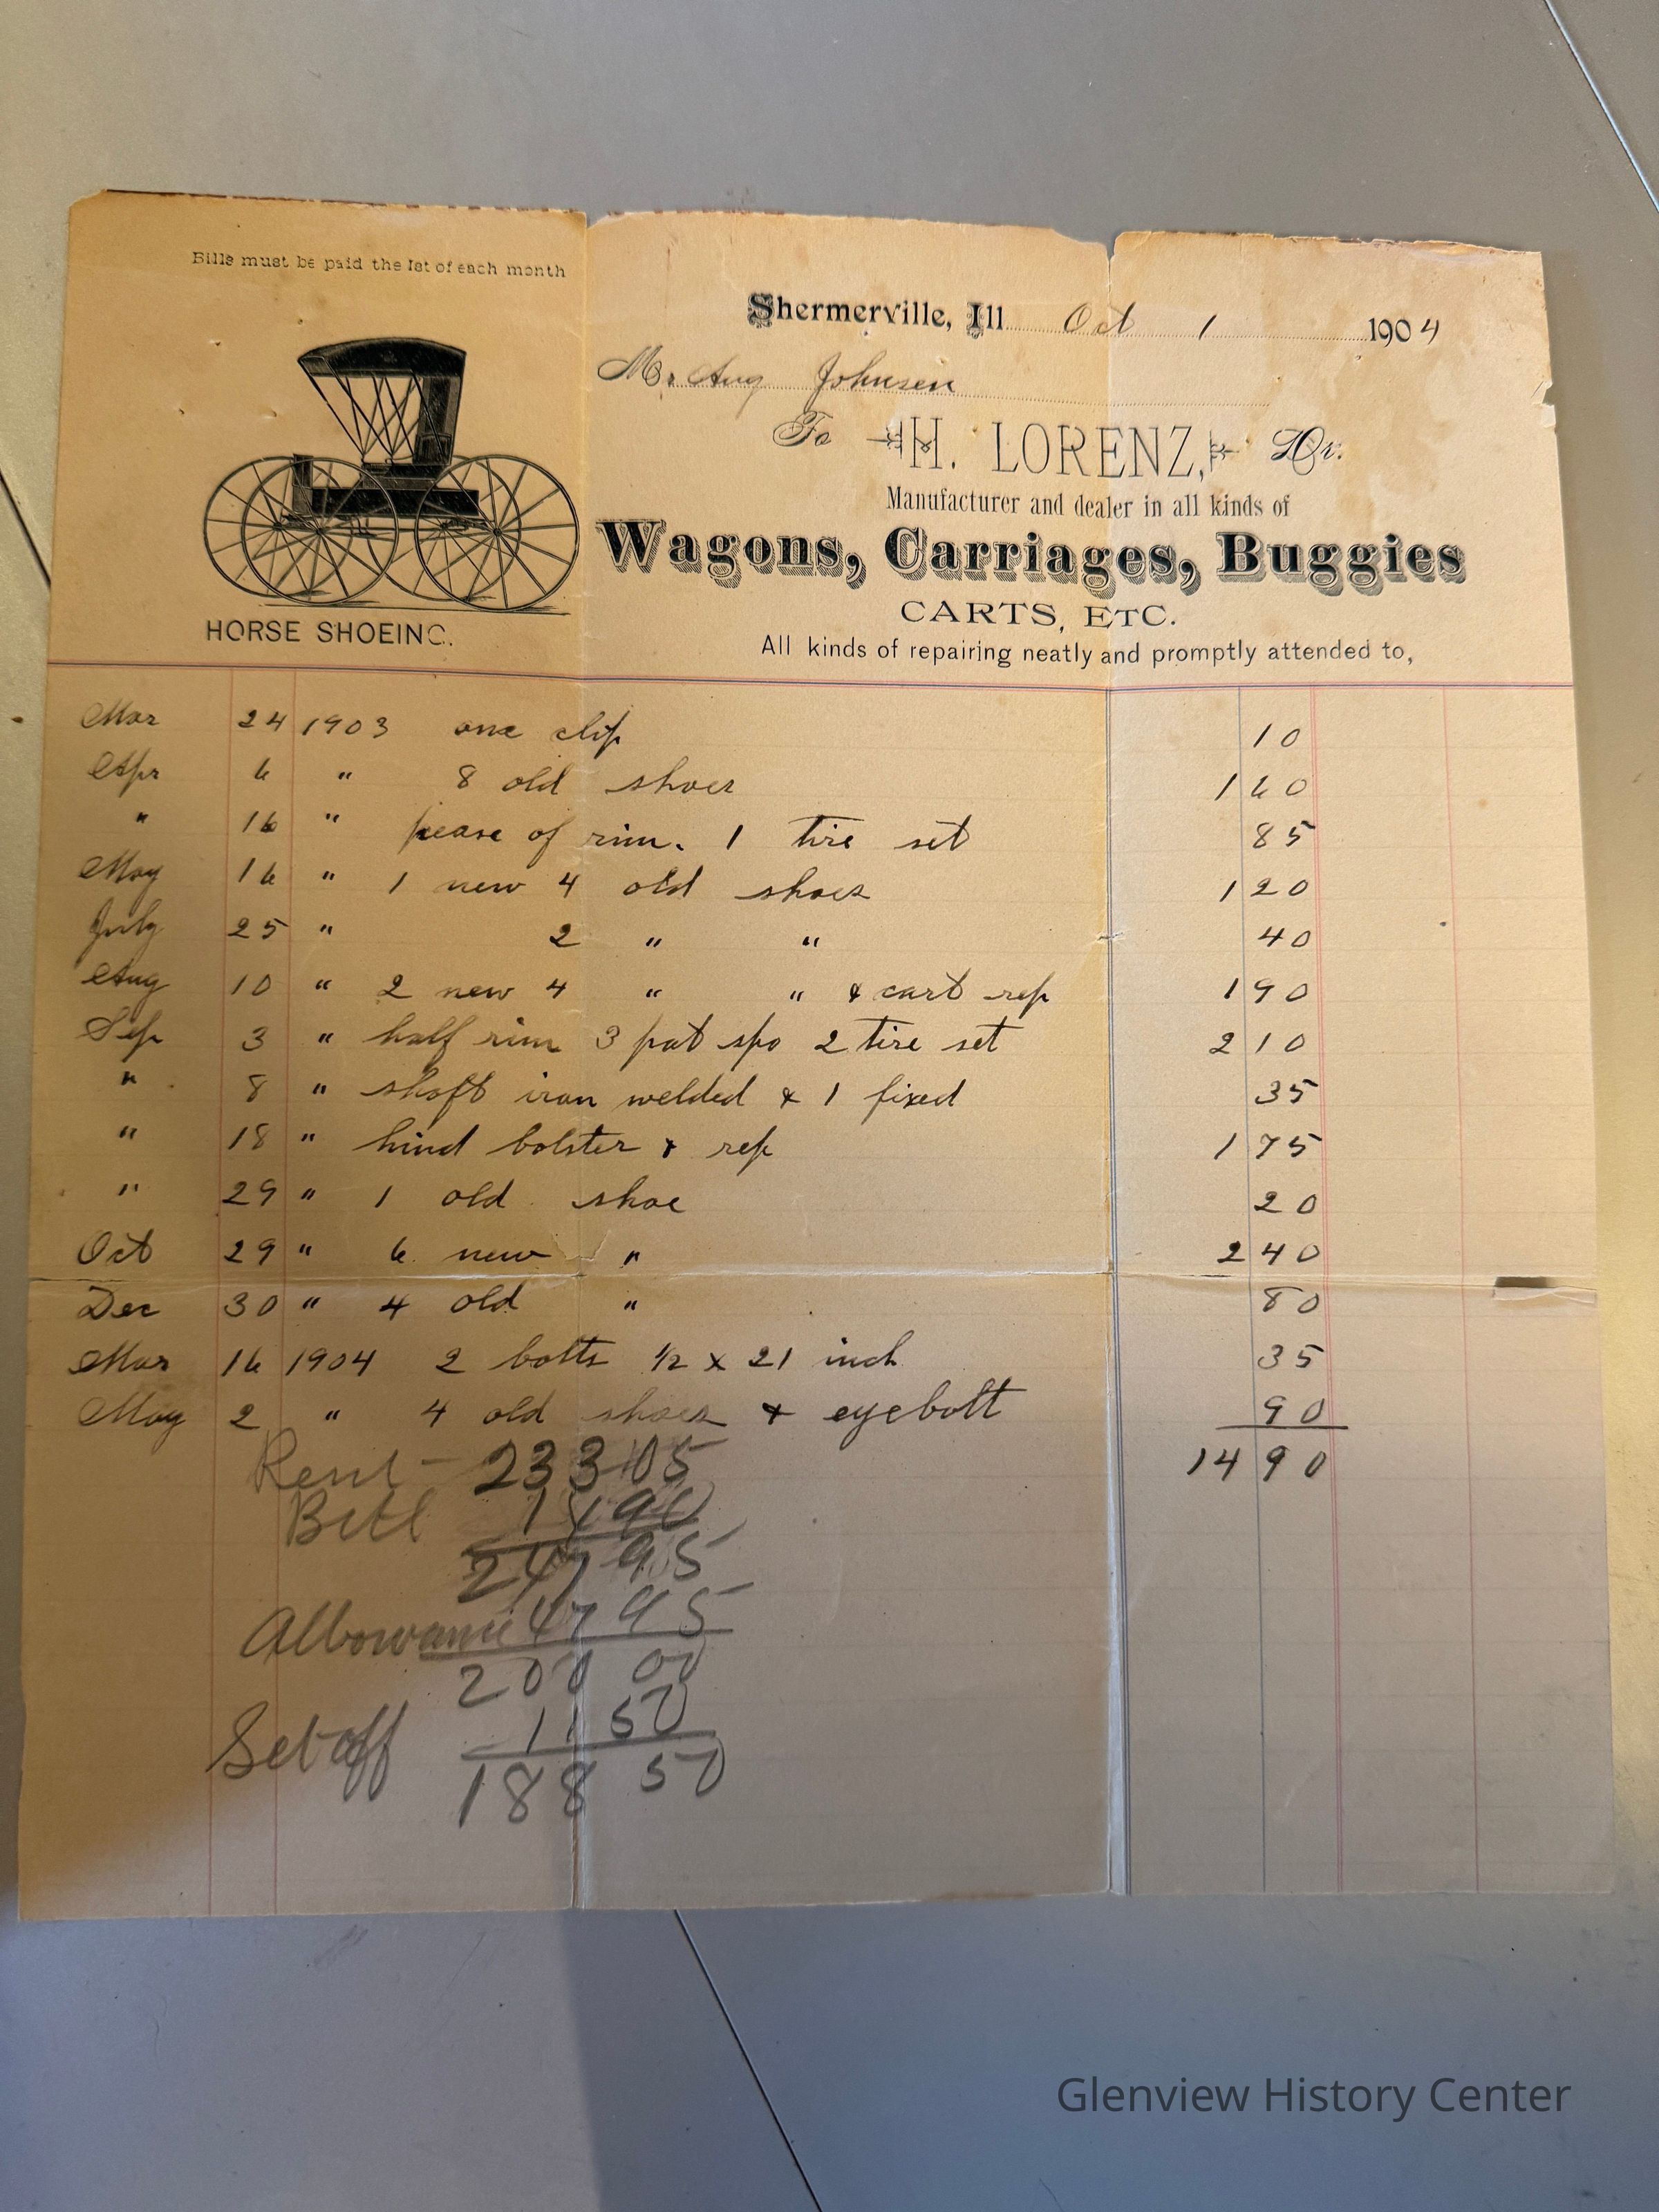 Bills must be paid the 1st of each month
Shermerville, Ill Oct 1 1904
Mr. Aug Johnsen
To H. LORENZ, Dr.
Manufacturer and dealer in all kinds of
Wagons, Carriages, Buggies
CARTS, ETC.
HORSE SHOEING.
All kinds of repairing neatly and promptly attended to,
Mar 24 1903 one clip 10
Apr 6 " 8 old shoes 1 60
" 16 " pease of rim. 1 tire set 85
May 16 " 1 new 4 old shoes 1 20
July 25 " 2 " " 40
Aug 10 " 2 new 4 " " & cart rep 1 90
Sep 3 " half rim 3 pat spo 2 tire set 2 10
" 8 " shaft iron welded & 1 fixed 35
" 18 " hind bolster & rep 1 75
" 29 " 1 old shoe 20
Oct 29 " 6 new " 2 40
Dec 30 " 4 old " 80
Mar 16 1904 2 bolts 1/2 x 21 inch 35
May 2 " 4 old shoes & eyebolt 90
14 90
Rent - 233 05
Bill 14 90
247 95
Allowance 47 95
200 00
Set off 11 50
188 50
Glenview History Center